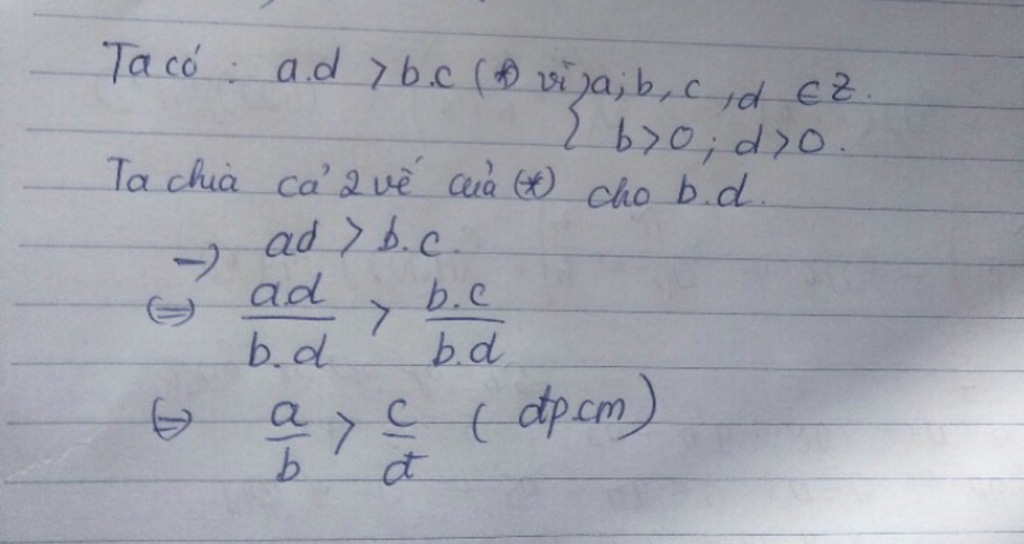 Ta có : a.d > b.c (*) vì { a; b, c, d ∈ Z.
b>0; d>0.
Ta chia cả 2 vế của (*) cho b.d.
→ ad > b.c.
⇔ ad/b.d > b.c/b.d
⇔ a/b > c/d (đpcm)